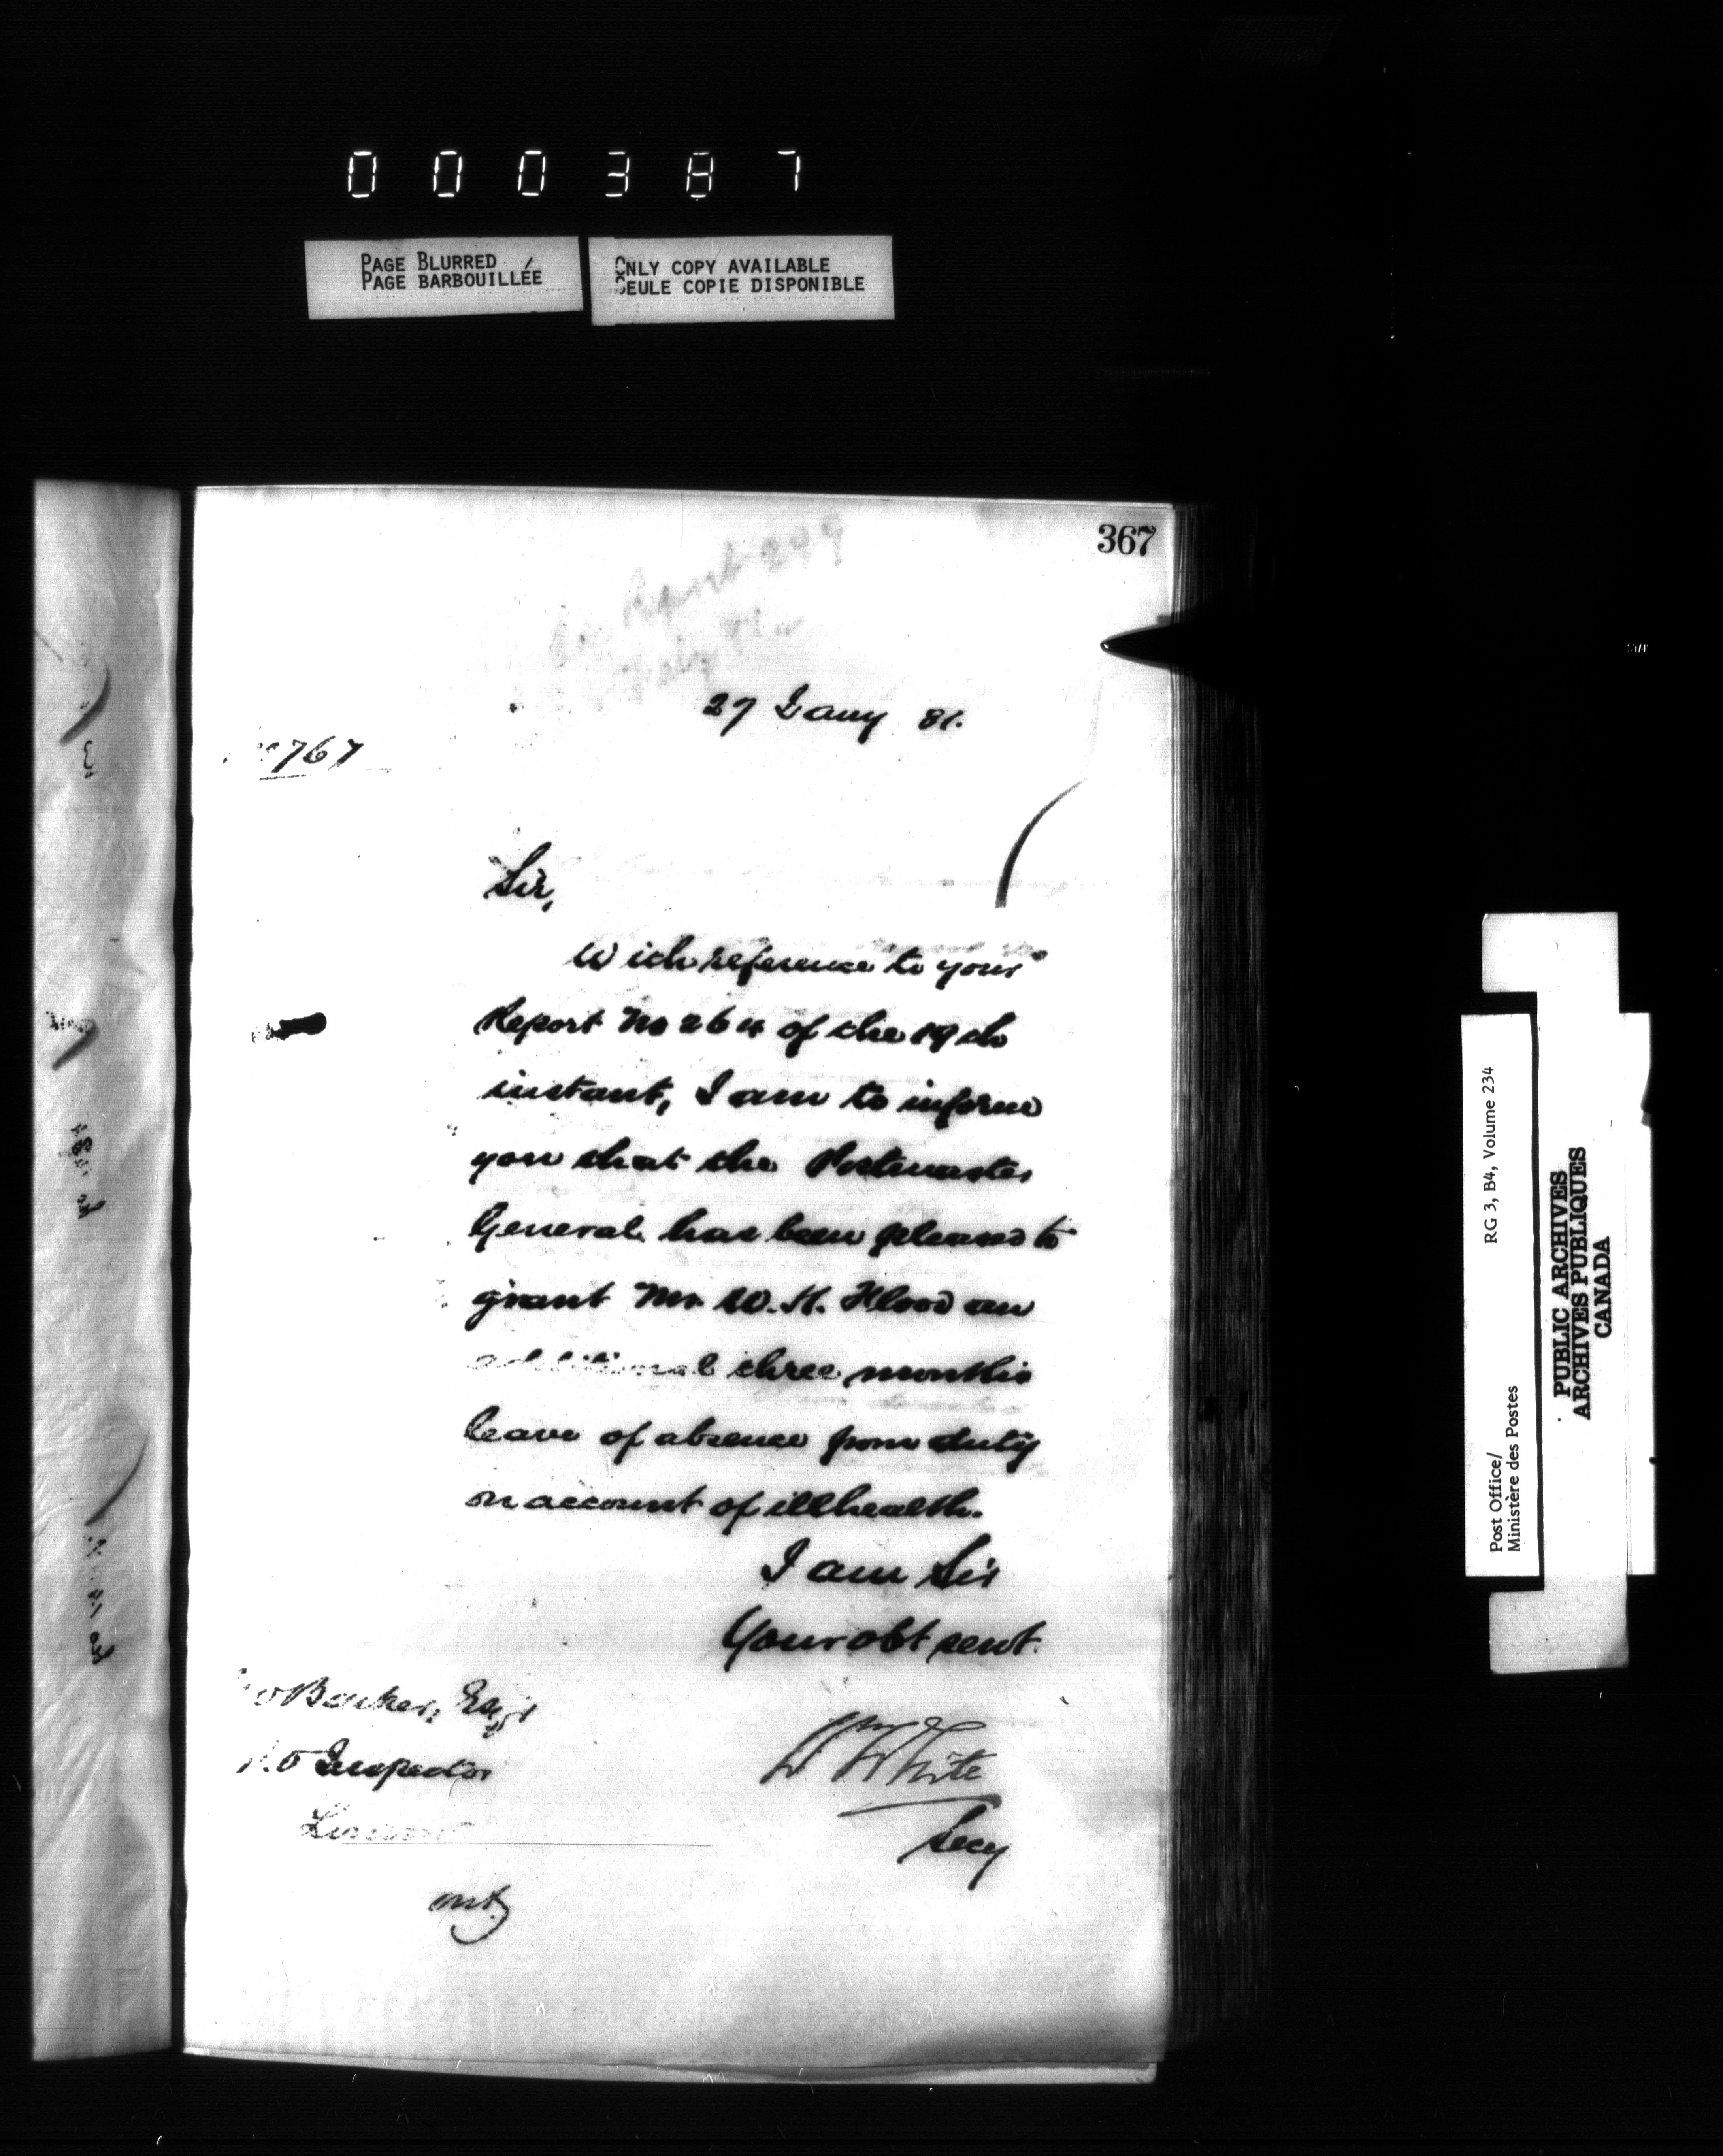 000387
PAGE BLURRED
PAGE BARBOUILLÉE
ONLY COPY AVAILABLE
SEULE COPIE DISPONIBLE
367
Report 299
27 Jany 81.
767
Sir,
With reference to your
Report No 264 of the 19th
instant, I am to inform
you that the Postmaster
General has been pleased to
grant Mr. W. H. Flood an
additional three months
leave of absence from duty
on account of illhealth.
I am Sir
Your obt servt.
Barker, Esqr
P.O Inspector
London
Wm White
Secy
RG 3, B4, Volume 234
Post Office/
Ministère des Postes
PUBLIC ARCHIVES
ARCHIVES PUBLIQUES
CANADA